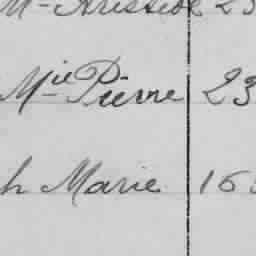 M- Aristide 23
Mie Pierre 23
h Marie 16